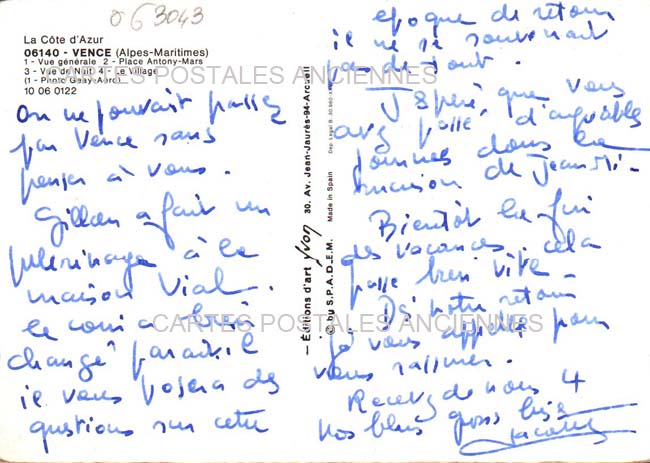 06 3043
La Côte d'Azur
06140 - VENCE (Alpes-Maritimes)
1 - Vue générale 2 - Place Antony-Mars
3 - Vue de Nuit 4 - Le Village
(1 - Photo Geay-Aéro)
10 06 0122
On ne pouvait passer
par Vence sans
penser à vous.
Gillou a fait un
pélerinage à la
maison Vial.
le coin a bien
changé parait-il
il vous posera des
questions sur cette
époque de retour
il ne se souvenait
pas de tout.
J'espère que vous
avez passé d'agréables
journées dans la
maison de Jean Mi-
Bientôt la fin
des vacances, cela
passe bien vite.
Dès notre retour
je vous appelle pour
vous rassurer.
Recevez de nous 4
nos plus gros bises
— Éditions d'art yvon 30, Av. Jean-Jaurès-94-Arcueil
© by S.P.A.D.E.M. Made in Spain
CARTES POSTALES ANCIENNES
CARTES POSTALES ANCIENNES